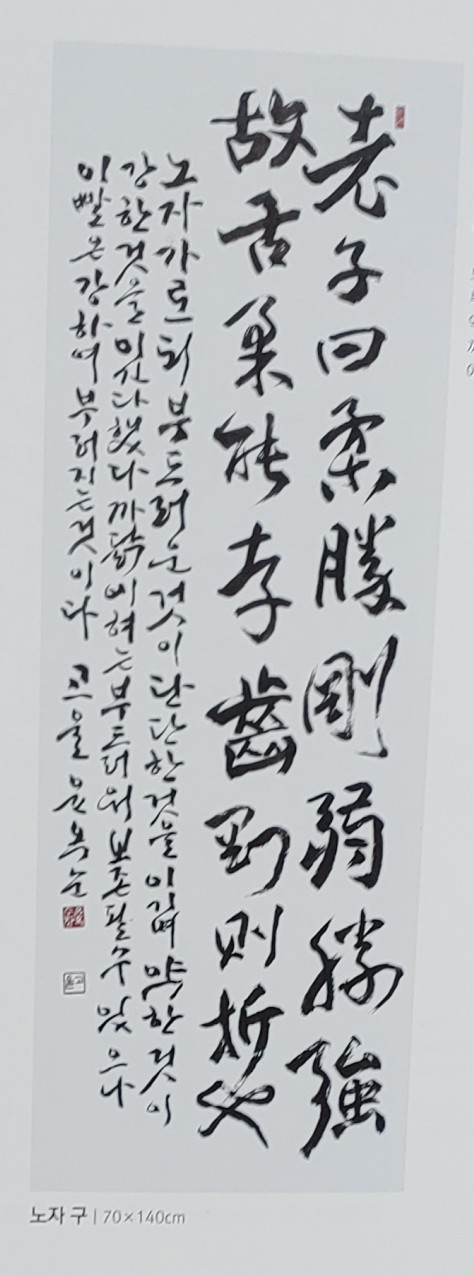 老子曰柔勝剛弱勝強
故舌柔能存齒剛則折也
노자가로되 부드러운것이 단단한것을 이기며 약한것이
강한것을 이긴다했다 까닭에 혀는부드러워 보존될수 있으나
이빨은강하여 부러지는것이다
노자 구 | 70×140cm